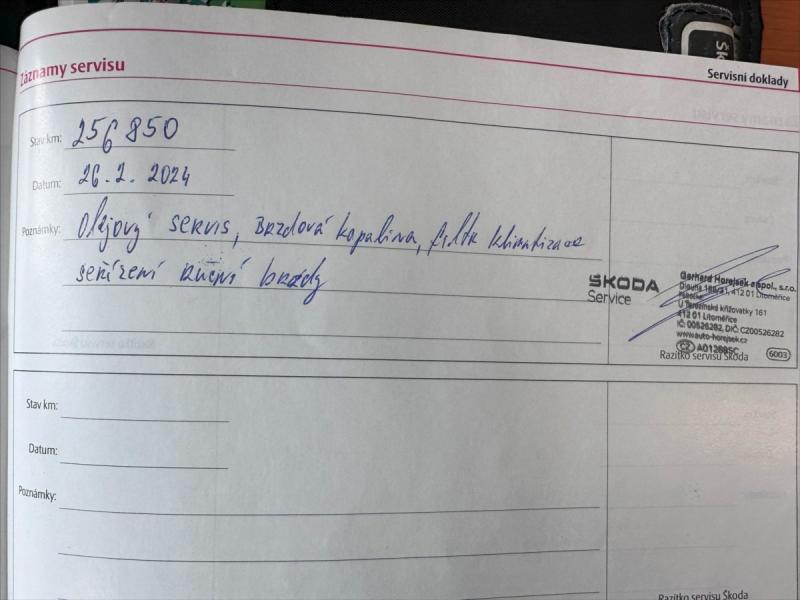 Záznamy servisu
Servisní doklady
Stav km: 256 850
Datum: 26.2. 2024
Poznámky: Olejový servis, Brzdová kapalina, filtr klimatizace
seřízení ruční brzdy
ŠKODA
Service
Gerhard Horejsek a spol., s.r.o.
412 01 Litoměřice
U Terezínské křižovatky 161
412 01 Litoměřice
IČ: 00526282, DIČ: CZ00526282
www.auto-horejsek.cz
CZ
Razítko servisu Škoda
6003
Stav km:
Datum:
Poznámky:
Razítko servisu Škoda